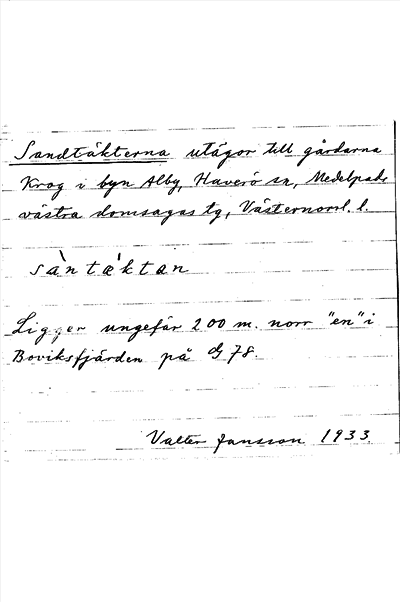 Sandtäkterna utägor till gårdarna
Krog i byn Alby, Haverö sn, Medelpads
västra domsagas tg, Västernorrl. l.
sà̀ntæ̀ktan
Ligger ungefär 200 m. norr "en" i
Boviksfjärden på G 78.
Valter Jansson 1933.